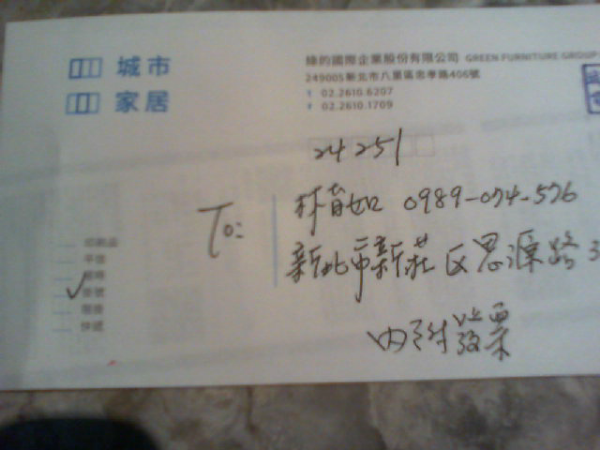 城市
家居
綠的國際企業股份有限公司 GREEN FURNITURE GROUP
249005新北市八里區忠孝路406號
T 02.2610.6207
F 02.2610.1709
24251
To:
林育如 0989-074-576
新北市新莊区思源路
印刷品
平信
掛號
限掛
快遞
內附發票